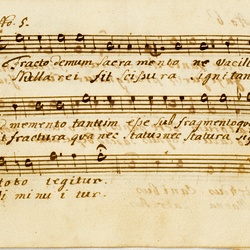 No. 5.
Fracto demum sacra mento ne vacil
Nulla rei fit scissura signi tan
memento tantum esse sub fragmento
fractura qua nec status nec statura
toto tegitur.
di minu i tur.